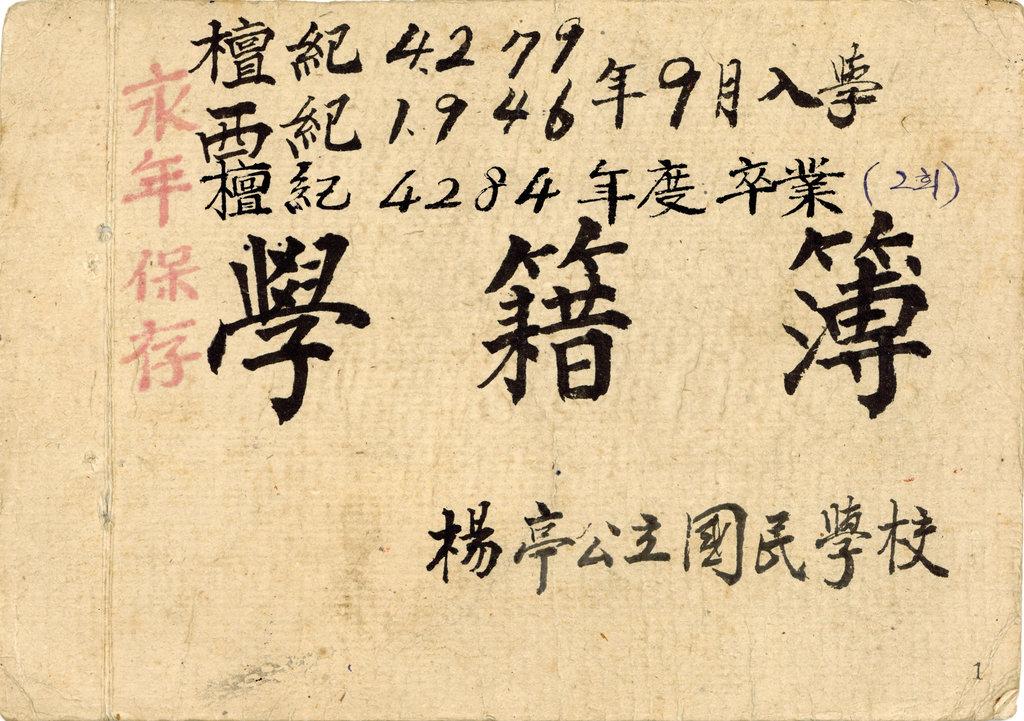 檀紀 4279
西紀 1946 年9月入學
檀紀 4284 年度 卒業 (2회)
永年保存
學籍簿
楊亭公立國民學校
1